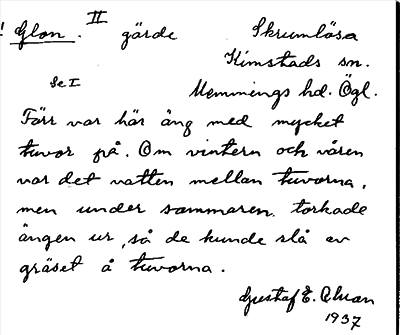 ! Glon. II gärde Skrumlösa
Kimstads sn.
Se I Memmings hd. Ögl.
Förr var här äng med mycket
tuvor på. Om vintern och våren
var det vatten mellan tuvorna,
men under sommaren torkade
ängen ur, så de kunde slå av
gräset å tuvorna.
Gustaf E.
1937